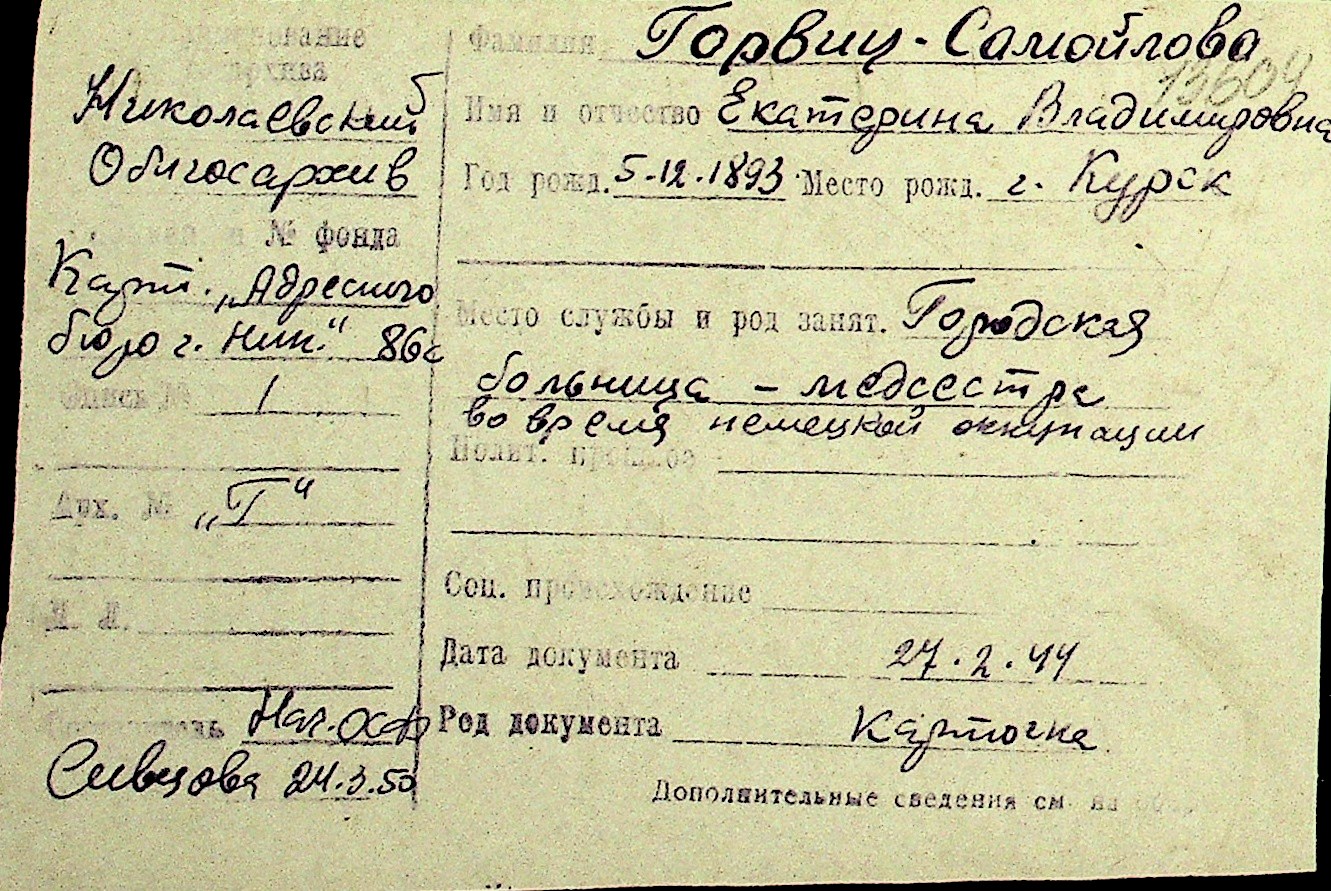 Наименование
архива
Николаевский
Облгосархив
№ фонда
Карт. „Адресного
бюро г. Ник." 86с
Опись № 1
Арх. № „Г"
Н. Л.
Составитель Нач. ОСФ
Сивцова 24.3.50
Фамилия Горвиц-Самойлова
13604
Имя и отчество Екатерина Владимировна
Год рожд. 5.12.1893 Место рожд. г. Курск
Место службы и род занят. Городская
больница – медсестра
во время немецкой оккупации
Полит. прошлое
Соц. происхождение
Дата документа 27.2.44
Род документа Карточка
Дополнительные сведения см. на об.